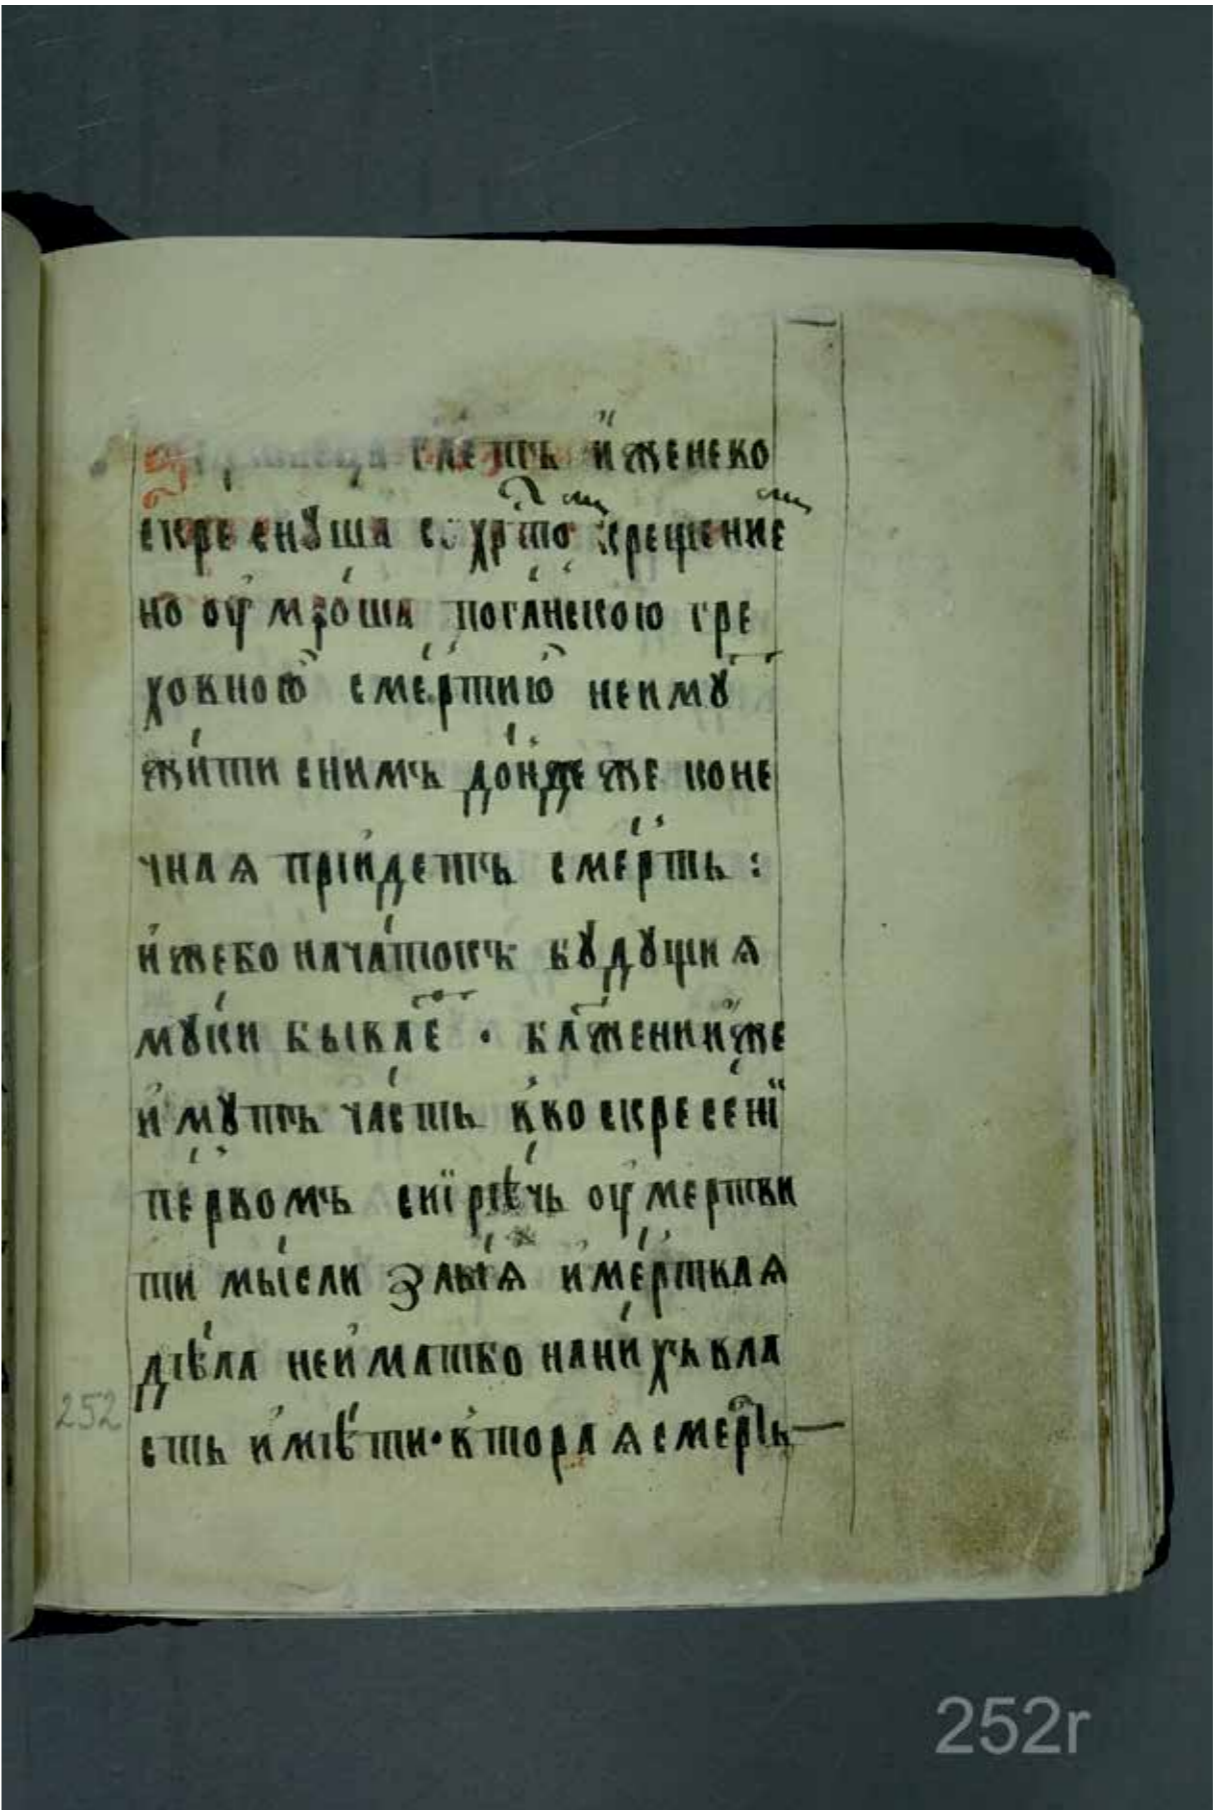 гл҃етъ и҆̀женево
скреснꙋша с хрⷭ҇тоⷨ крещениеⷨ
но оу҆мро́ша пога́нскою гре
ховною̑ сме́ртию̑ неимꙋⷮ
жи́ти сни́мъ до́ндеже коне
чнаꙗ прїи́детъ сме́рть :
и҆́жебо нача́токъ бꙋдꙋщиѧ
мꙋ́ки бывае҆ⷮ · бл҃женнии҆́же
и҆́мꙋтъ ча́сть в҆воскресе́нїи
пе́рвомъ сиїрѣ́чь оу҆мертви
ти мы́сли злы́ѧ и҆ме́ртваѧ
дѣ́ла неи҆матьбо нани́хъвла
сть и҆мѣ́ти · в҆тораѧсмерⷮь
252
252r